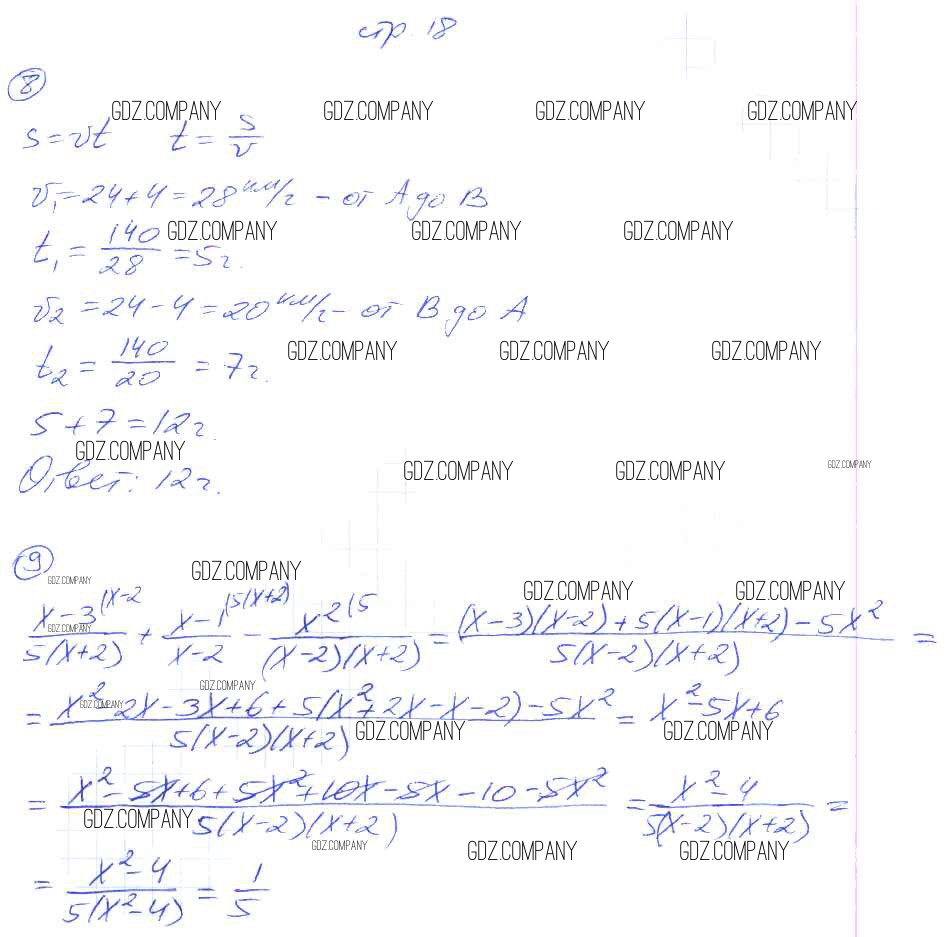 стр. 18
8
GDZ.COMPANY GDZ.COMPANY GDZ.COMPANY GDZ.COMPANY
s = vt t = s/v
v₁ = 24 + 4 = 28 км/ч – от А до В
GDZ.COMPANY GDZ.COMPANY GDZ.COMPANY
t₁ = 140/28 = 5 ч.
v₂ = 24 – 4 = 20 км/ч – от В до А
GDZ.COMPANY GDZ.COMPANY GDZ.COMPANY
t₂ = 140/20 = 7 ч.
5 + 7 = 12 ч.
GDZ.COMPANY
GDZ.COMPANY GDZ.COMPANY GDZ.COMPANY
Ответ: 12 ч.
9
GDZ.COMPANY GDZ.COMPANY
GDZ.COMPANY GDZ.COMPANY
(x–3)/(5(x+2)) (x–2 + (x–1)/(x–2) (5(x+2) – x²/((x–2)(x+2)) (5 = ((x–3)(x–2)+5(x–1)(x+2)–5x²)/(5(x–2)(x+2)) =
GDZ.COMPANY
GDZ.COMPANY
GDZ.COMPANY
= (x²–2x–3x+6+5(x²+2x–x–2)–5x²)/(5(x–2)(x+2)) = x²–5x+6
GDZ.COMPANY GDZ.COMPANY
= (x²–5x+6+5x²+10x–5x–10–5x²)/(5(x–2)(x+2)) = (x²–4)/(5(x–2)(x+2)) =
GDZ.COMPANY
GDZ.COMPANY GDZ.COMPANY GDZ.COMPANY
= (x²–4)/(5(x²–4)) = 1/5